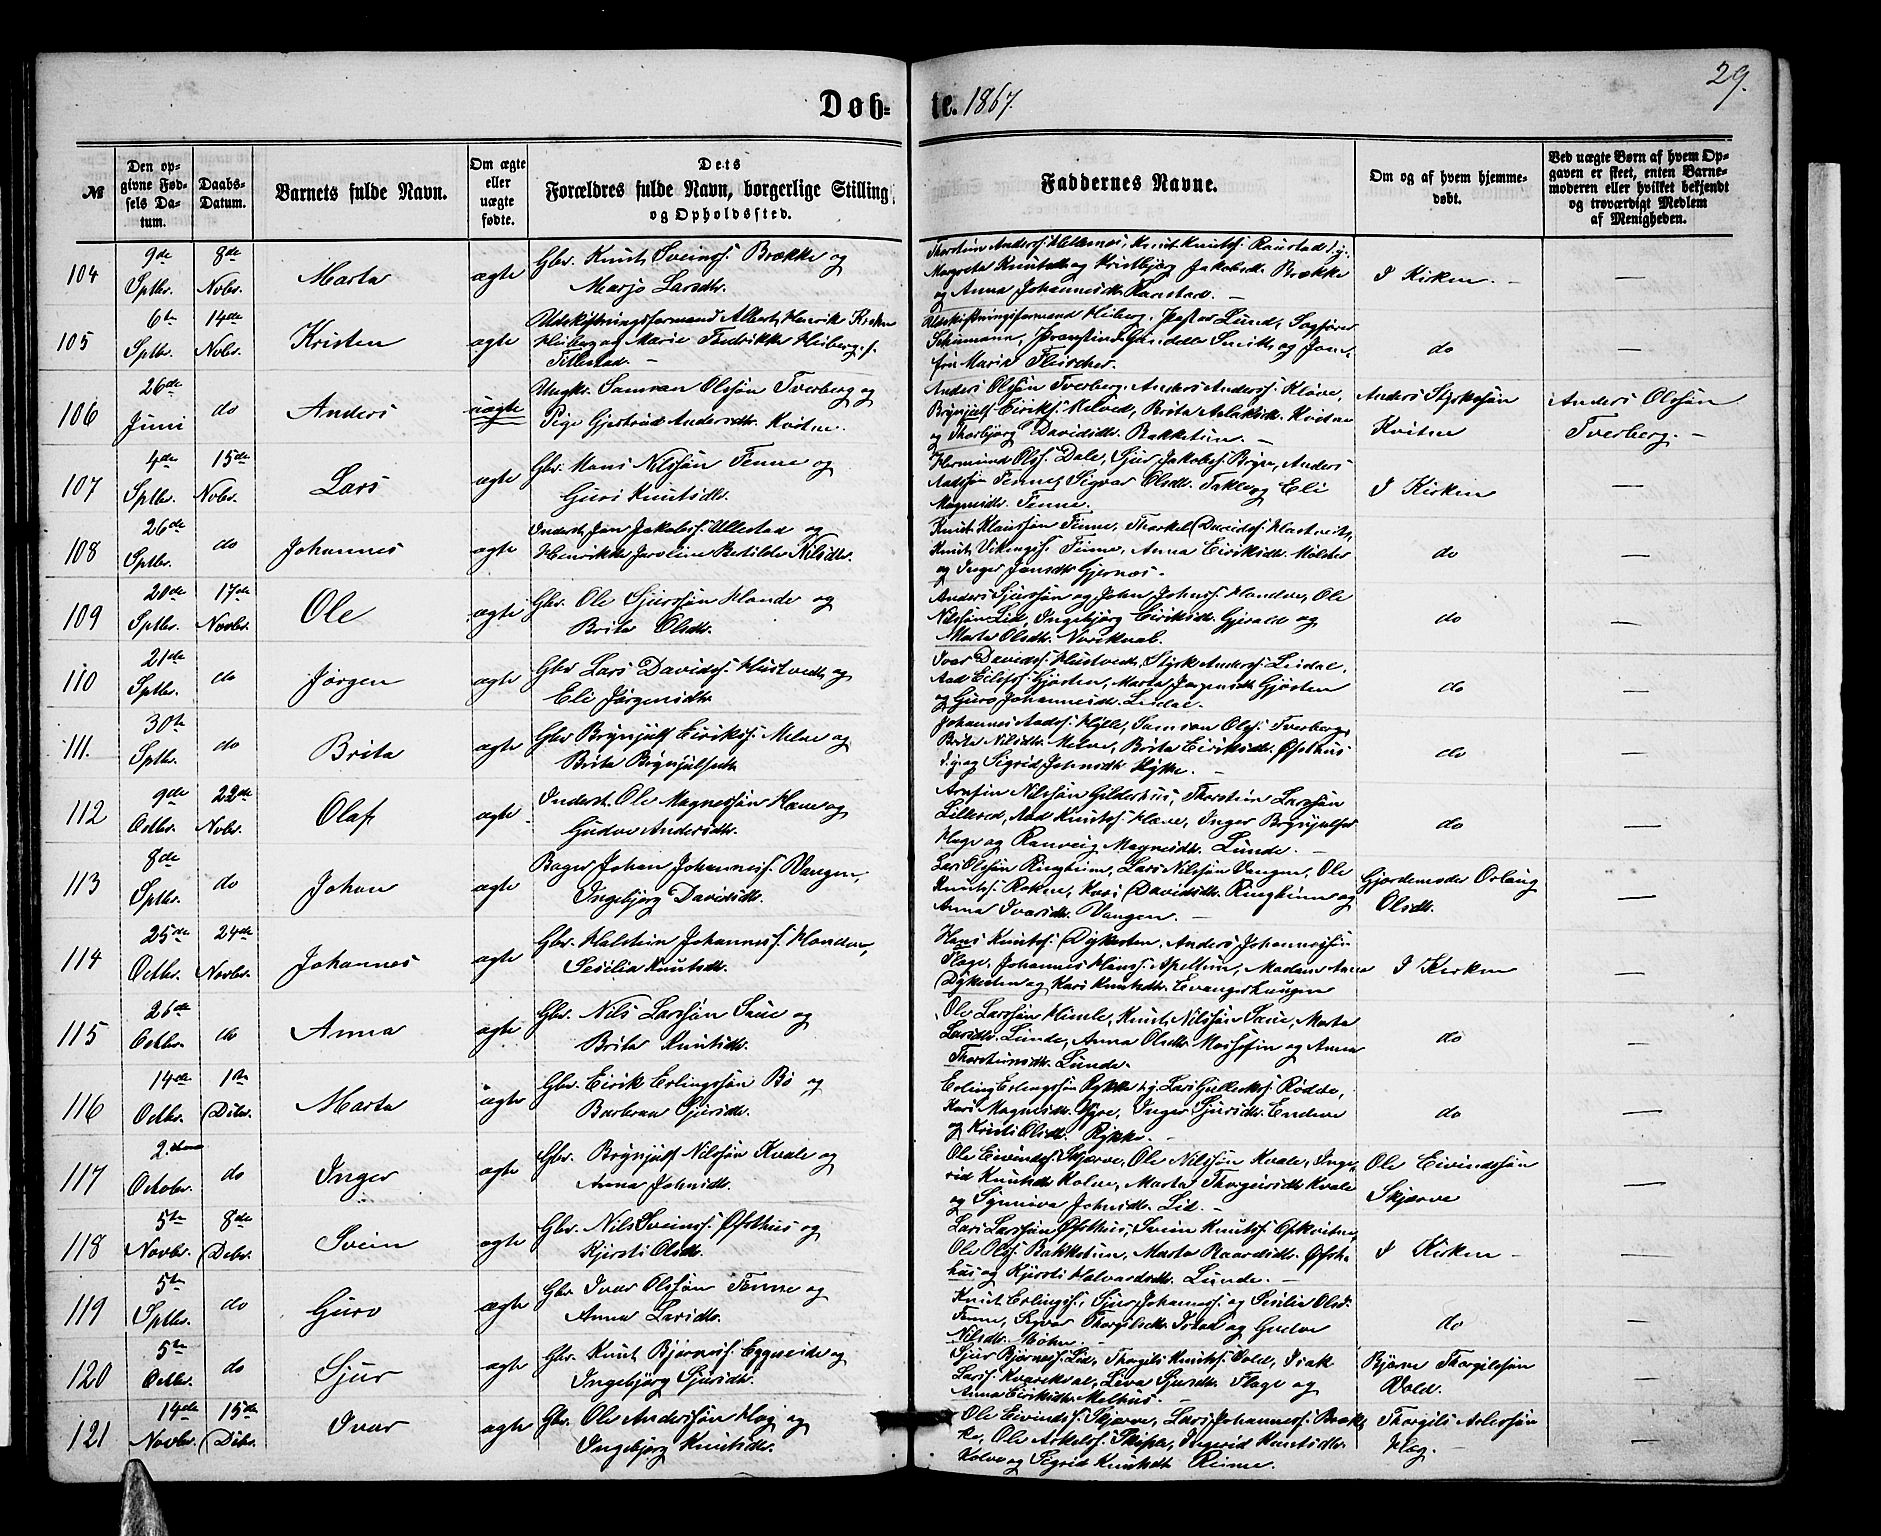 29.
Døb-
te. 1867.
№
Den op-
givne Fød-
sels Da-
tum.
Daabs-
Datum.
Barnets fulde Navn.
Om ægte
eller
uægte
fødte.
Dets
Forældres fulde Navn, borgerlige Stilling
og Opholdssted.
Faddernes Navne.
Om og af hvem hjemme-
døbt.
Ved uægte Børn af hvem Op-
gaven er skeet, enten Barne-
moderen eller hvilket bekjendt
og troværdigt Medlem
af Menigheden.
104
9de
Sptbr.
8de
Novbr.
Marta
ægte
Gbr. Knut Sveinss. Brække og
Marjo Larsdtr.
Thorstein Anderss. Hellenæs, Knut Knutss. Raustad
Margreta Knutsdtr og Kristbjørg Jakobsdtr. Brække
og Anna Johannesdtr. Raustad. —
I Kirken. —
—
105
6te
Sptbr.
14de
Novbr.
Kristen
ægte
Udskiftningsformand Albert Henrik
Heiberg og Marie Fredrikke Heiberg, f.
Tillestad. —
Udskiftningsformand Heiberg, Pastor Lund, Sagfører
Schumann, og Jom-
fru Marie Fleischer.
do
—
106
26de
Juni
do
Anders
uægte
Ungkr. Samson Olssøn Tverberg og
Pige Gjertrud Andersdtr. Kvitne.
Anders Olssøn Tverberg, Anders Anderss. Kløve,
Brynjulf Eirikss. Melved, Brita Aslaksdtr. Kvitne
og Thorbjørg Davidsdtr. Bakketun. —
Anders Styrkesøn
Kvitne
Anders Olssøn
Tverberg. —
107
4de
Sptbr.
15de
Novbr.
Lars
ægte
Gbr. Mons Nilssøn Fenne og
Guri Knutsdtr.
Hermund Olss. Dale, Sjur Jakobss. Bryn, Anders
Aadssøn Fenne, Sigvor Olsdtr. Takle og Eli
Magnesdtr. Fenne.
I Kirken
—
108
26de
Sptbr.
do
Johannes
ægte
Inderst, Jon Jakobss. Ullestad og
Henrikke Jorline Bertilde Nilsdtr.
Knut Klaussøn Finne, Thorkel Davidss. Hustveit,
Knut Vikingss. Finne, Anna Eiriksdtr. Mølster
og Inger Jonsdtr. Gjernæs.
do
—
109
20de
Sptbr.
17de
Novbr.
Ole
ægte
Gbr. Ole Sjurssøn Honde og
Brita Olsdtr.
Anders Sjurssøn og John Johnss. Honden, Ole
Nilssøn Lid, Ingebjørg Eiriksdtr. Gjerald og
Marta Olsdtr. Norekval.
do
—
110
21de
Sptbr.
do
Jørgen
ægte
Gbr. Lars Davidss. Hustvedt, og
Eli Jørgensdtr.
Ivar Davidss. Hustvedt, Styrk Anderss. Lirdal,
Aad Eilifss. Gjøsten, Marta Jørgensdtr. Gjøsten
og Guro Johannesdtr. Lirdal.
do
—
111.
30te
Sptbr.
do
Brita
ægte
Gbr. Brynjulf Eirikss. Melve og
Brita Brynjulfsdtr.
Johannes Aadss. Hylle, Samson Olss. Tverberg,
Brita Nilsdtr. Melve, Brita Eiriksdtr. Øfsthus
og Sigrid Johnsdtr. —
do
—
112
9de
Octbr.
22de
Novbr.
Olaf
ægte
Inderst, Ole Magnessøn Hæve og
Gudve Andersdtr.
Arnfin Nilssøn Gilderhus, Thorstein Larssøn
Aad Knutss. Hæve, Inger Brynjulfsdtr
Flage og Ranveig Magnesdtr. Lunde. —
do
—
113
8de
Sptbr.
do
Johan
ægte
Bager Johan Johanness. Vangen,
Ingebjørg Davidsdtr.
Lars Olssøn Ringheim, Lars Nilssøn Vangen, Ole
Knutss. Rokne, Kari Davidsdtr. Ringheim og
Anna Ivarsdtr. Vangen. —
Gjordemoder Orlaug
Olsdtr.
—
114
25de
Octbr.
24de
Novbr.
Johannes
ægte
Gbr. Halstein Johanness. Honden,
Sesilia Knutsdtr.
Hans Knutss. Dykesten, Anders Johannessøn
Flage, Johannes Hanss. Apeltun, Madam Anna
Dykesten og Kari Knutsdtr. Evangerlaugen
I Kirken
—
115
26de
Octbr.
do
Anna
ægte
Gbr. Nils Larssøn Saue og
Brita Knutsdtr.
Ole Larssøn Himle, Knut Nilssøn Saue, Marta
Larsdtr. Lunde, Anna Olsdtr. Mosefin og Anna
Thorsteinsdtr. Lunde.
do
—
116
14de
Octbr.
1ste
Debr.
Marta
ægte
Gbr. Eirik Erlingssøn Bø og
Barbraa Sjursdtr.
Erling Erlingssøn Rykke, Lars Gulleikss. Rødte,
Kari Magnesdtr. Gjere, Inger Sjursdtr. Endeve
og Kristi Olsdtr. Rykke. —
do
—
117
2.
October.
do
Inger
ægte
Gbr. Brynjulf Nilssøn Kvale og
Anna Johnsdtr.
Ole Eivindss. Skjerve, Ole Nilssøn Kvale, Inge-
rid Knutsdtr. Kolve, Marta Thorgersdtr. Kvale
og Synneva Johnsdtr. Lid. —
Ole Eivindssøn
Skjerve
—
118
5te
Novbr.
8de
Debr.
Svein
ægte
Gbr. Nils Sveinss. Øfsthus og
Kjersti Olsdtr.
Lars Larssøn Øfsthus, Svein Knutss. Opkvitne,
Ole Olss. Bakketun, Marta Raardsdtr. Øfst-
hus og Kjersti Halvardsdtr. Lunde. —
I Kirken —
—
119
5te
Sptbr.
do
Guro
ægte
Gbr. Ivar Olssøn Fenne og
Anna Larsdtr.
Knut Erlingss., Sjur Johanness. og Sesilia Olsd.
Fenne, Sigvor Thorgilsdtr. og Gudve
Nilsdtr.
do
—
120
5te
Octbr.
do
Sjur
ægte
Gbr. Knut Bjørness. Eggereide og
Ingebjørg Sjursdtr.
Sjur Bjørness. Lid, Thorgils Knutss. Vold, Isak
Larss. Kvarekval, Sjursdtr. Flage og
Anna Eiriksdtr. Melhus. —
Bjørn Thorgilssøn
Vold.
—
121
14de
Novbr.
15de
Debr.
Ivar
ægte
Gbr. Ole Anderssøn Hag og
Ingebjørg Knutsdtr.
Ole Eivindss. Skjerve, Lars Johanness. Bræk-
ke, Ole Askelss. Skiple, Ingerid Knutsdtr.
Kolve og Sigrid Knutsdtr. Reime.
Thorgils Aslessøn
Hag. —
—